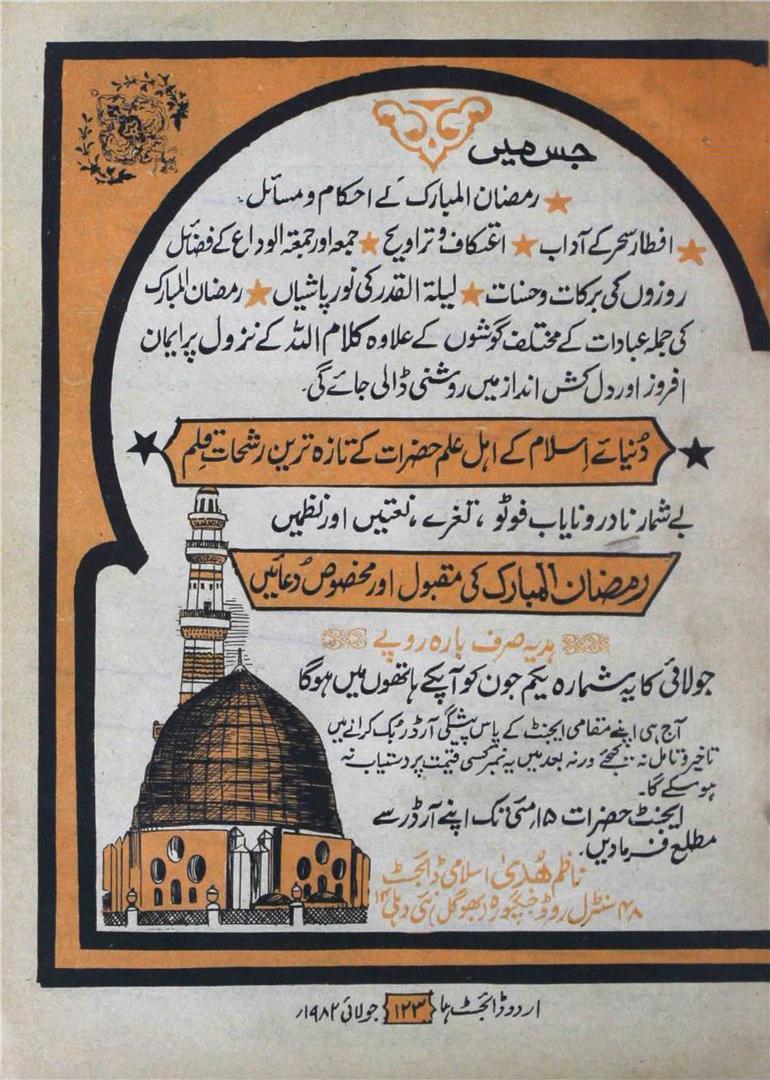 جس میں
★ رمضان المبارک کے احکام و مسائل۔
★ افطار سحر کے آداب ★ اعتکاف و تراویح ★ جمعہ اور جمعۃ الوداع کے فضائل
روزوں کی برکات و حسنات ★ لیلۃ القدر کی نور پاشیاں ★ رمضان المبارک
کی جملہ عبادات کے مختلف گوشوں کے علاوہ کلام اللہ کے نزول پر ایمان
افروز اور دل کش انداز میں روشنی ڈالی جائے گی۔
★ دُنیائے اسلام کے اہل علم حضرات کے تازہ ترین رشحات قلم ★
بے شمار نادر و نایاب فوٹو، تغرے، نعتیں اور نظمیں
رمضان المبارک کی مقبول اور مخصوص دُعائیں
ہدیہ صرف بارہ روپے
جولائی کا یہ شمارہ یکم جون کو آپکے ہاتھوں میں ہوگا
آج ہی اپنے مقامی ایجنٹ کے پاس پیشگی آرڈر بُک کرائے میں
تاخیر و تامل نہ کیجئے ورنہ بعد میں یہ نمبر کسی قیمت پر دستیاب نہ
ہو سکے گا۔
ایجنٹ حضرات ۱۵ مئی تک اپنے آرڈر سے
مطلع فرمادیں۔
ناظم ھُدیٰ اسلامی ڈائجسٹ
۴۸ سنٹرل روڈ جنگپورہ (بھوگل) نئی دہلی ۱۴
اردو ڈائجسٹ ہما ۱۲۳ جولائی ۱۹۸۲ء